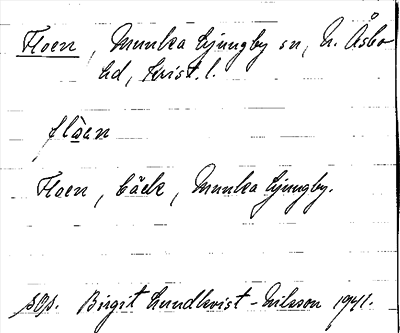 Floen, Munka Ljungby sn, N. Åsbo
hd, Krist. l.
flåan
Floen, bäck, Munka Ljungby.
Birgit Lundkvist-Nilsson 1941.